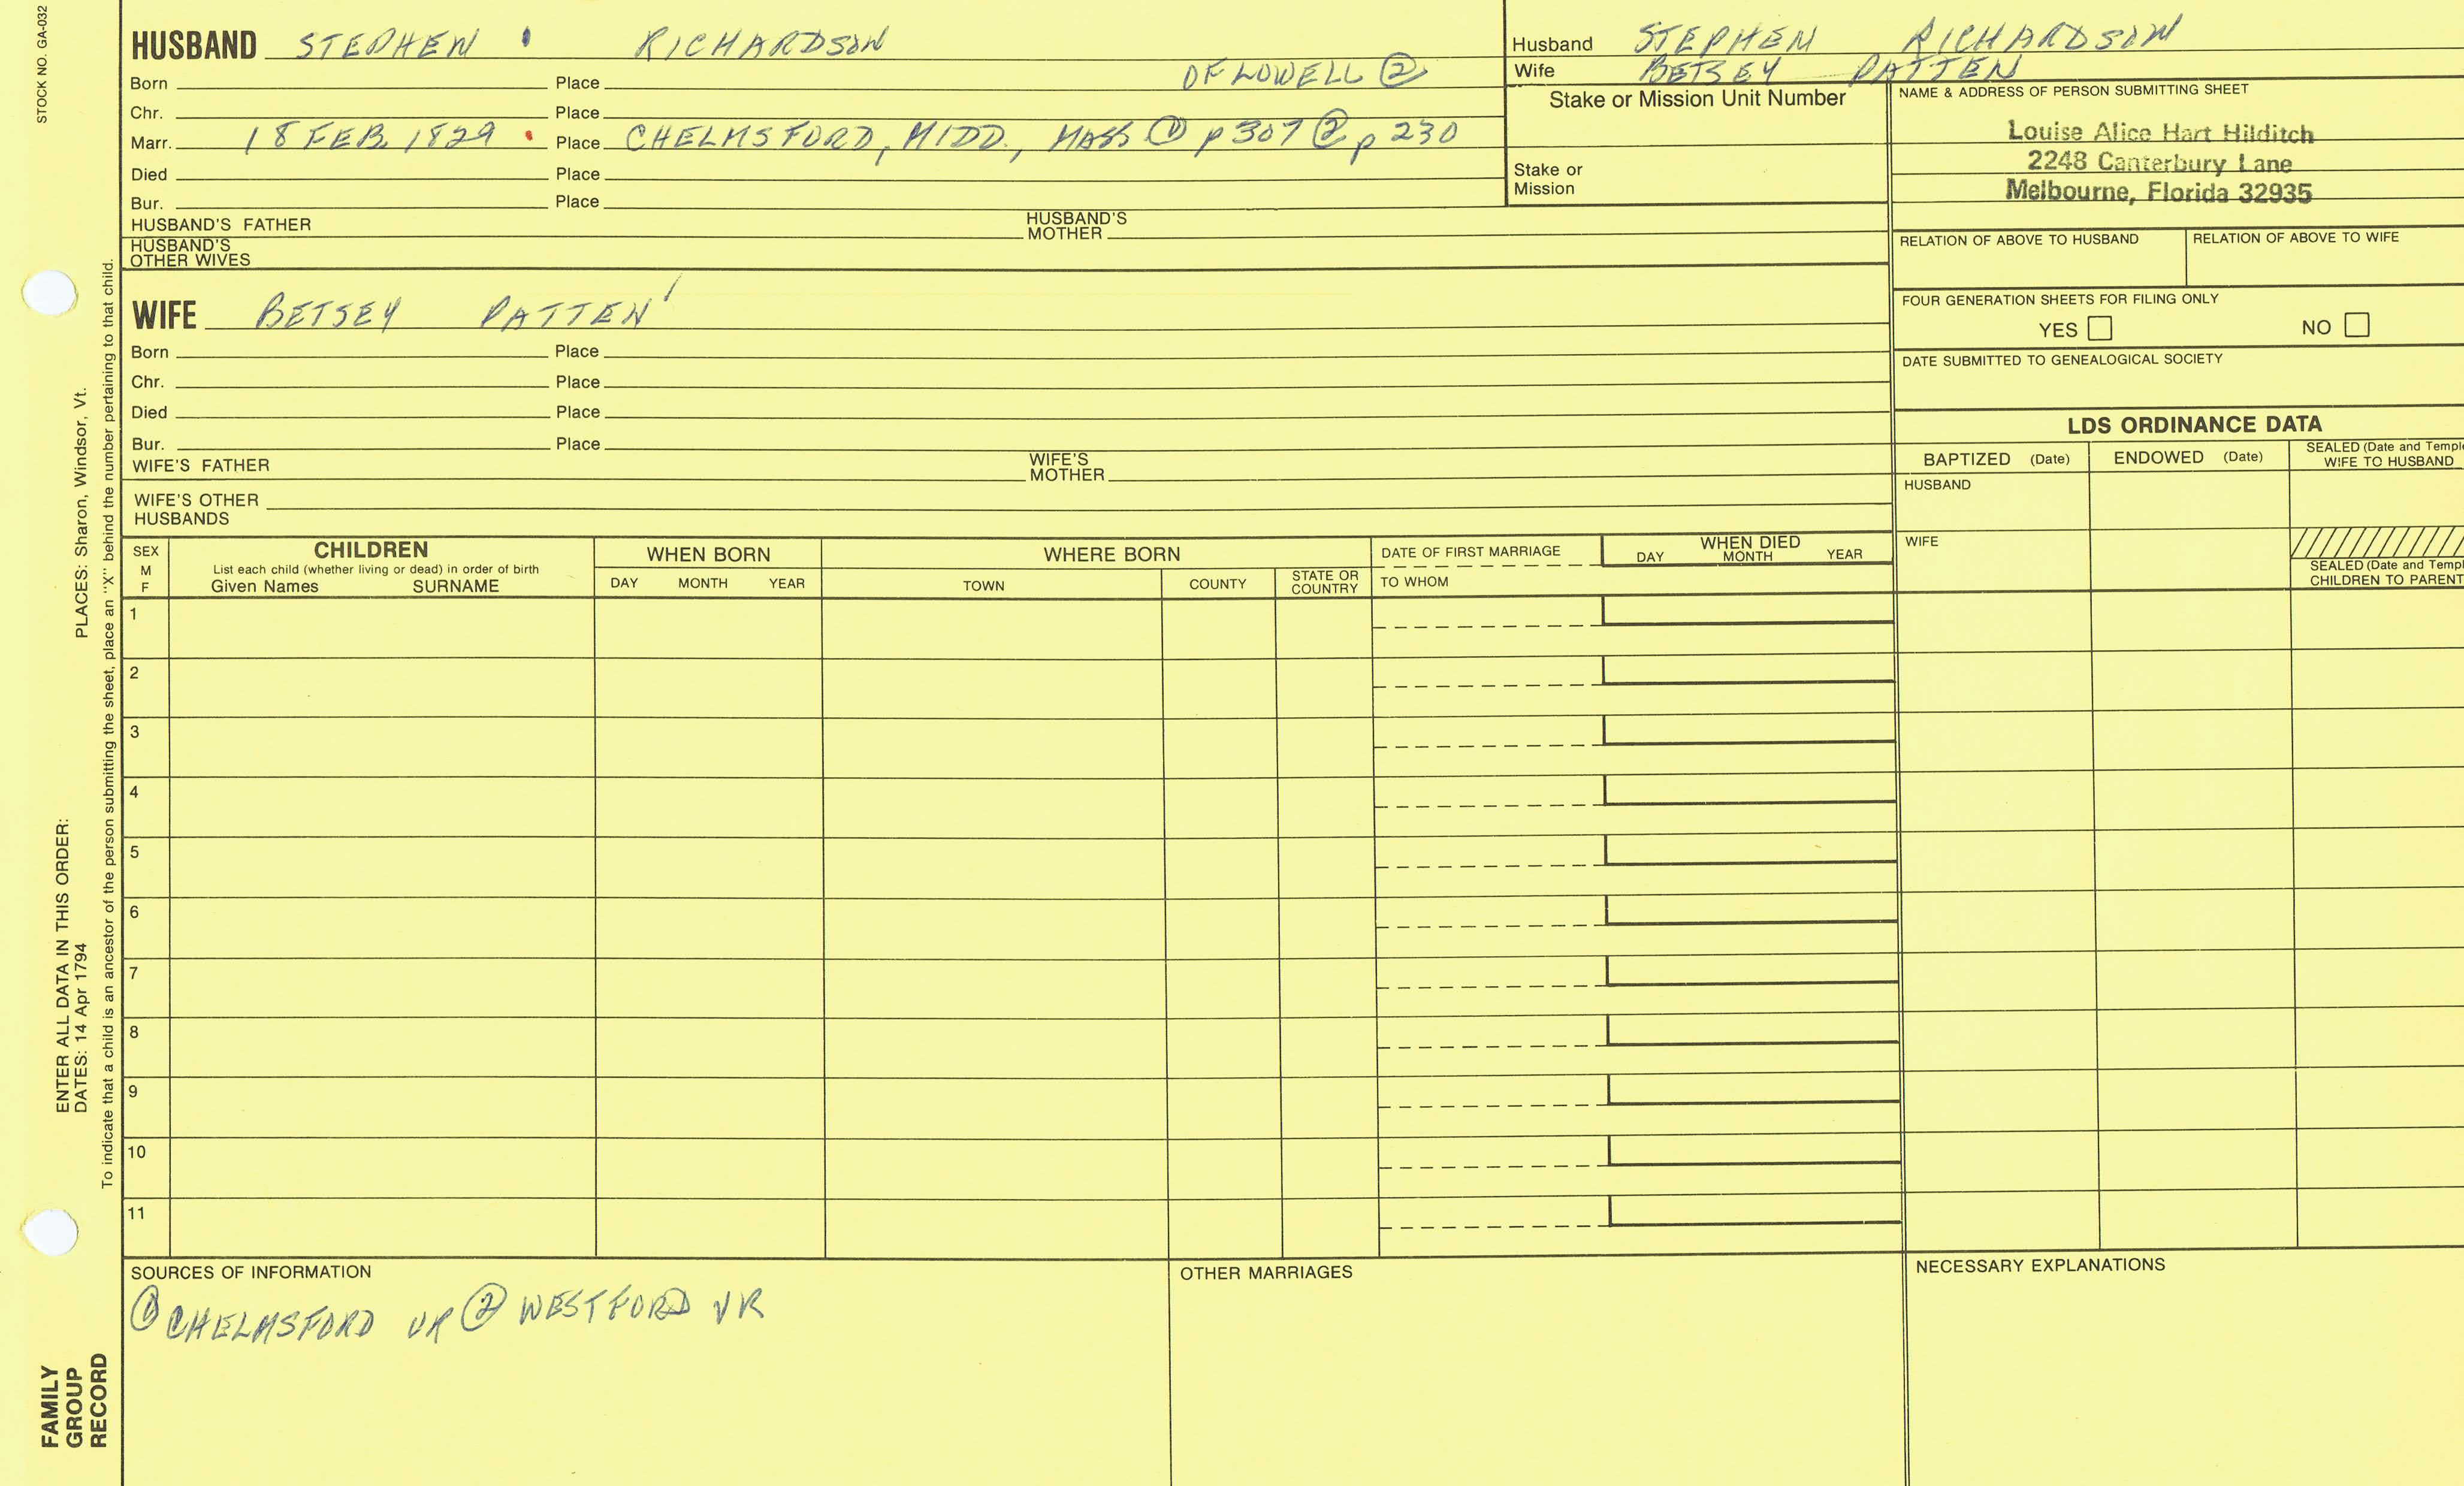 STOCK NO. GA-032
HUSBAND STEPHEN RICHARDSON
OF LOWELL ②
Born Place
Chr. Place
Marr. 18 FEB. 1829 Place CHELMSFORD, MIDD., MASS ① p 307 ② p 230
Died Place
Bur. Place
HUSBAND'S FATHER HUSBAND'S MOTHER
HUSBAND'S OTHER WIVES
Husband STEPHEN RICHARDSON
Wife BETSEY PATTEN
Stake or Mission Unit Number
Stake or Mission
NAME & ADDRESS OF PERSON SUBMITTING SHEET
Louise Alice Hart Hilditch
2248 Canterbury Lane
Melbourne, Florida 32935
RELATION OF ABOVE TO HUSBAND RELATION OF ABOVE TO WIFE
FOUR GENERATION SHEETS FOR FILING ONLY
YES NO
DATE SUBMITTED TO GENEALOGICAL SOCIETY
WIFE BETSEY PATTEN
Born Place
Chr. Place
Died Place
Bur. Place
WIFE'S FATHER WIFE'S MOTHER
WIFE'S OTHER HUSBANDS
LDS ORDINANCE DATA
BAPTIZED (Date) ENDOWED (Date) SEALED (Date and Temple
WIFE TO HUSBAND
HUSBAND
WIFE
SEALED (Date and Templ
CHILDREN TO PARENT
SEX
M
F
CHILDREN
List each child (whether living or dead) in order of birth
Given Names SURNAME
WHEN BORN
DAY MONTH YEAR
WHERE BORN
TOWN COUNTY STATE OR COUNTRY
DATE OF FIRST MARRIAGE
TO WHOM
WHEN DIED
DAY MONTH YEAR
1
2
3
4
5
6
7
8
9
10
11
SOURCES OF INFORMATION
① CHELMSFORD VR ② WESTFORD VR
OTHER MARRIAGES
NECESSARY EXPLANATIONS
ENTER ALL DATA IN THIS ORDER:
DATES: 14 Apr 1794 PLACES: Sharon, Windsor, Vt.
To indicate that a child is an ancestor of the person submitting the sheet, place an "X" behind the number pertaining to that child.
FAMILY
GROUP
RECORD